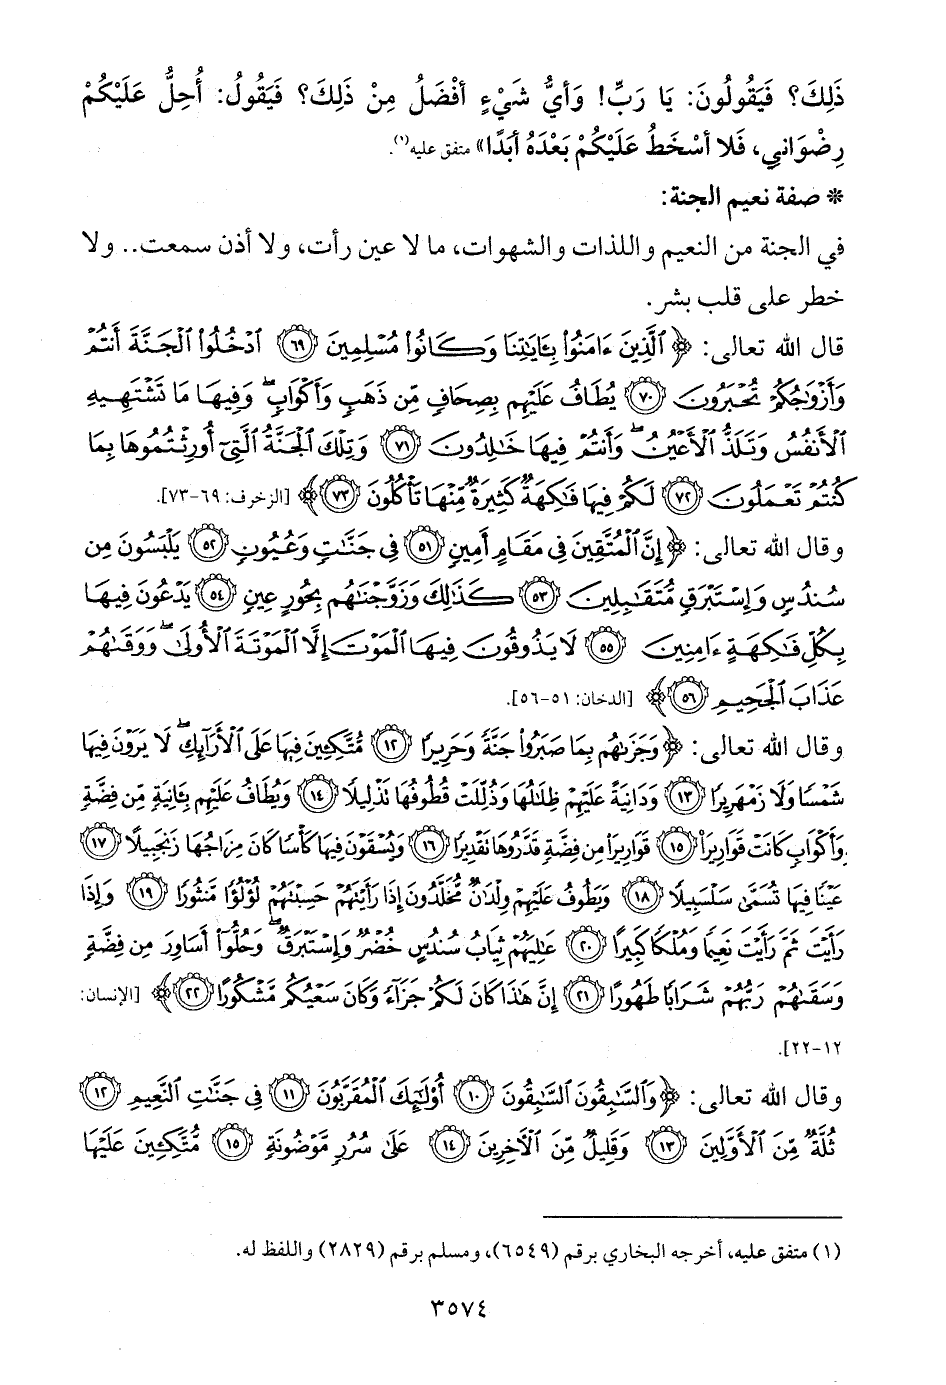 ذَلِكَ؟ فَيَقُولُونَ: يَا رَبِّ! وَأيُّ شَيْءٍ أفْضَلُ مِنْ ذَلِكَ؟ فَيَقُولُ: أُحِلُّ عَلَيْكُمْ
رِضْوَانِي، فَلا أسْخَطُ عَلَيْكُمْ بَعْدَهُ أبَدًا» متفق عليه(١).
* صفة نعيم الجنة:
في الجنة من النعيم واللذات والشهوات، ما لا عين رأت، ولا أذن سمعت.. ولا
خطر على قلب بشر.
قال الله تعالى: ﴿ٱلَّذِينَ ءَامَنُوا۟ بِـَٔايَـٰتِنَا وَكَانُوا۟ مُسْلِمِينَ ﴿٦٩﴾ ٱدْخُلُوا۟ ٱلْجَنَّةَ أَنتُمْ
وَأَزْوَٰجُكُمْ تُحْبَرُونَ ﴿٧٠﴾ يُطَافُ عَلَيْهِم بِصِحَافٍ مِّن ذَهَبٍ وَأَكْوَابٍ ۖ وَفِيهَا مَا تَشْتَهِيهِ
ٱلْأَنفُسُ وَتَلَذُّ ٱلْأَعْيُنُ ۖ وَأَنتُمْ فِيهَا خَـٰلِدُونَ ﴿٧١﴾ وَتِلْكَ ٱلْجَنَّةُ ٱلَّتِىٓ أُورِثْتُمُوهَا بِمَا
كُنتُمْ تَعْمَلُونَ ﴿٧٢﴾ لَكُمْ فِيهَا فَـٰكِهَةٌ كَثِيرَةٌ مِّنْهَا تَأْكُلُونَ ﴿٧٣﴾﴾ [الزخرف: ٦٩-٧٣].
وقال الله تعالى: ﴿إِنَّ ٱلْمُتَّقِينَ فِى مَقَامٍ أَمِينٍ ﴿٥١﴾ فِى جَنَّـٰتٍ وَعُيُونٍ ﴿٥٢﴾ يَلْبَسُونَ مِن
سُندُسٍ وَإِسْتَبْرَقٍ مُّتَقَـٰبِلِينَ ﴿٥٣﴾ كَذَٰلِكَ وَزَوَّجْنَـٰهُم بِحُورٍ عِينٍ ﴿٥٤﴾ يَدْعُونَ فِيهَا
بِكُلِّ فَـٰكِهَةٍ ءَامِنِينَ ﴿٥٥﴾ لَا يَذُوقُونَ فِيهَا ٱلْمَوْتَ إِلَّا ٱلْمَوْتَةَ ٱلْأُولَىٰ ۖ وَوَقَىٰهُمْ
عَذَابَ ٱلْجَحِيمِ ﴿٥٦﴾﴾ [الدخان: ٥١-٥٦].
وقال الله تعالى: ﴿وَجَزَىٰهُم بِمَا صَبَرُوا۟ جَنَّةً وَحَرِيرًا ﴿١٢﴾ مُّتَّكِـِٔينَ فِيهَا عَلَى ٱلْأَرَآئِكِ ۖ لَا يَرَوْنَ فِيهَا
شَمْسًا وَلَا زَمْهَرِيرًا ﴿١٣﴾ وَدَانِيَةً عَلَيْهِمْ ظِلَـٰلُهَا وَذُلِّلَتْ قُطُوفُهَا تَذْلِيلًا ﴿١٤﴾ وَيُطَافُ عَلَيْهِم بِـَٔانِيَةٍ مِّن فِضَّةٍ
وَأَكْوَابٍ كَانَتْ قَوَارِيرَا۠ ﴿١٥﴾ قَوَارِيرَا۟ مِن فِضَّةٍ قَدَّرُوهَا تَقْدِيرًا ﴿١٦﴾ وَيُسْقَوْنَ فِيهَا كَأْسًا كَانَ مِزَاجُهَا زَنجَبِيلًا ﴿١٧﴾
عَيْنًا فِيهَا تُسَمَّىٰ سَلْسَبِيلًا ﴿١٨﴾ وَيَطُوفُ عَلَيْهِمْ وِلْدَٰنٌ مُّخَلَّدُونَ إِذَا رَأَيْتَهُمْ حَسِبْتَهُمْ لُؤْلُؤًا مَّنثُورًا ﴿١٩﴾ وَإِذَا
رَأَيْتَ ثَمَّ رَأَيْتَ نَعِيمًا وَمُلْكًا كَبِيرًا ﴿٢٠﴾ عَـٰلِيَهُمْ ثِيَابُ سُندُسٍ خُضْرٌ وَإِسْتَبْرَقٌ ۖ وَحُلُّوٓا۟ أَسَاوِرَ مِن فِضَّةٍ
وَسَقَىٰهُمْ رَبُّهُمْ شَرَابًا طَهُورًا ﴿٢١﴾ إِنَّ هَـٰذَا كَانَ لَكُمْ جَزَآءً وَكَانَ سَعْيُكُم مَّشْكُورًا ﴿٢٢﴾﴾ [الإنسان:
١٢-٢٢].
وقال الله تعالى: ﴿وَٱلسَّـٰبِقُونَ ٱلسَّـٰبِقُونَ ﴿١٠﴾ أُو۟لَـٰٓئِكَ ٱلْمُقَرَّبُونَ ﴿١١﴾ فِى جَنَّـٰتِ ٱلنَّعِيمِ ﴿١٢﴾
ثُلَّةٌ مِّنَ ٱلْأَوَّلِينَ ﴿١٣﴾ وَقَلِيلٌ مِّنَ ٱلْـَٔاخِرِينَ ﴿١٤﴾ عَلَىٰ سُرُرٍ مَّوْضُونَةٍ ﴿١٥﴾ مُّتَّكِـِٔينَ عَلَيْهَا
(١) متفق عليه، أخرجه البخاري برقم (٦٥٤٩)، ومسلم برقم (٢٨٢٩) واللفظ له.
٣٥٧٤